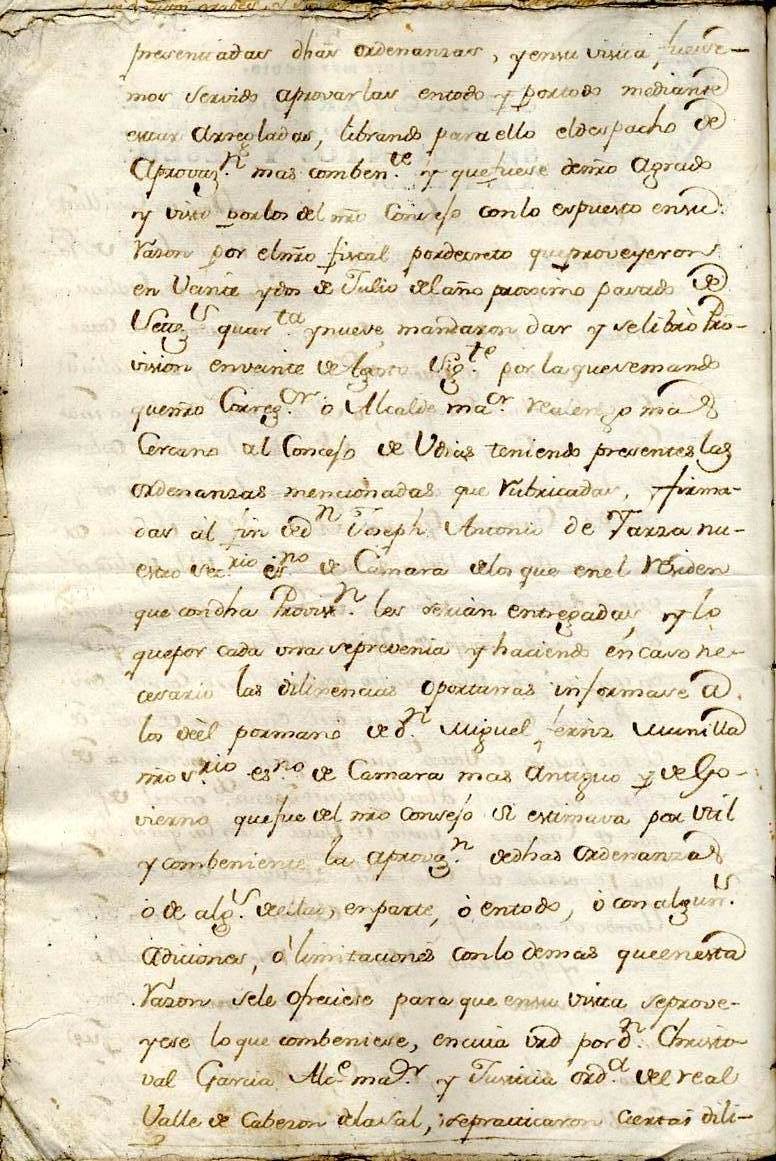 presentadas dhas ordenanzas, y ensu vista, fuese-
mos servido aprovarlas entodo y portodo mediante
estar Arregladas, librando para ello eldespacho de
Aprovaz.n mas comben.te y quefuese denro Agrado
y visto porlos del nro Consejo conlo espuesto ensu
razon por elnro fiscal pordecreto queproveyeron
en Veinte ydos de Julio delaño proximo pasado de
Settez.s quar.ta ynueve, mandaron dar y selibró Pro-
vision enveinte de Agosto sig.te por la quesemando
quenro Correg.or o Alcalde ma.or realengo mas
Cercano al Concejo de Udias teniendo presentes las
ordenanzas mencionadas que rubricadas, firma-
das al fin de d.n Joseph Antonio de Yarza nu-
estro sec.rio es.no de Camara delos que enel residen
que condha Provis.n les serian entregadas, y lo
quepor cada una seprevenia y haciendo encaso ne-
cesario las dilixencias oportunas informase a
los deel pormano de d.n Miguel fernz Munilla
nro s.rio es.no de Camara mas Antiguo y de Go-
vierno quefue del nro Consejo si estimava por util
y combeniente la aprovaz.n dedhas ordenanzas
o de alg.s dellas, enparte, ò entodo, ò con algun.s
adiciones, ò limitaciones conlo demas queenesta
razon sele ofreciese para que ensu vista seprove-
yese lo que combeniese, encuia vrd por d.n Christo-
val Garcia Alc.e ma.or y Justicia ord.a del real
Valle de Cabezon delaSal, sepracticaron ciertas dili-